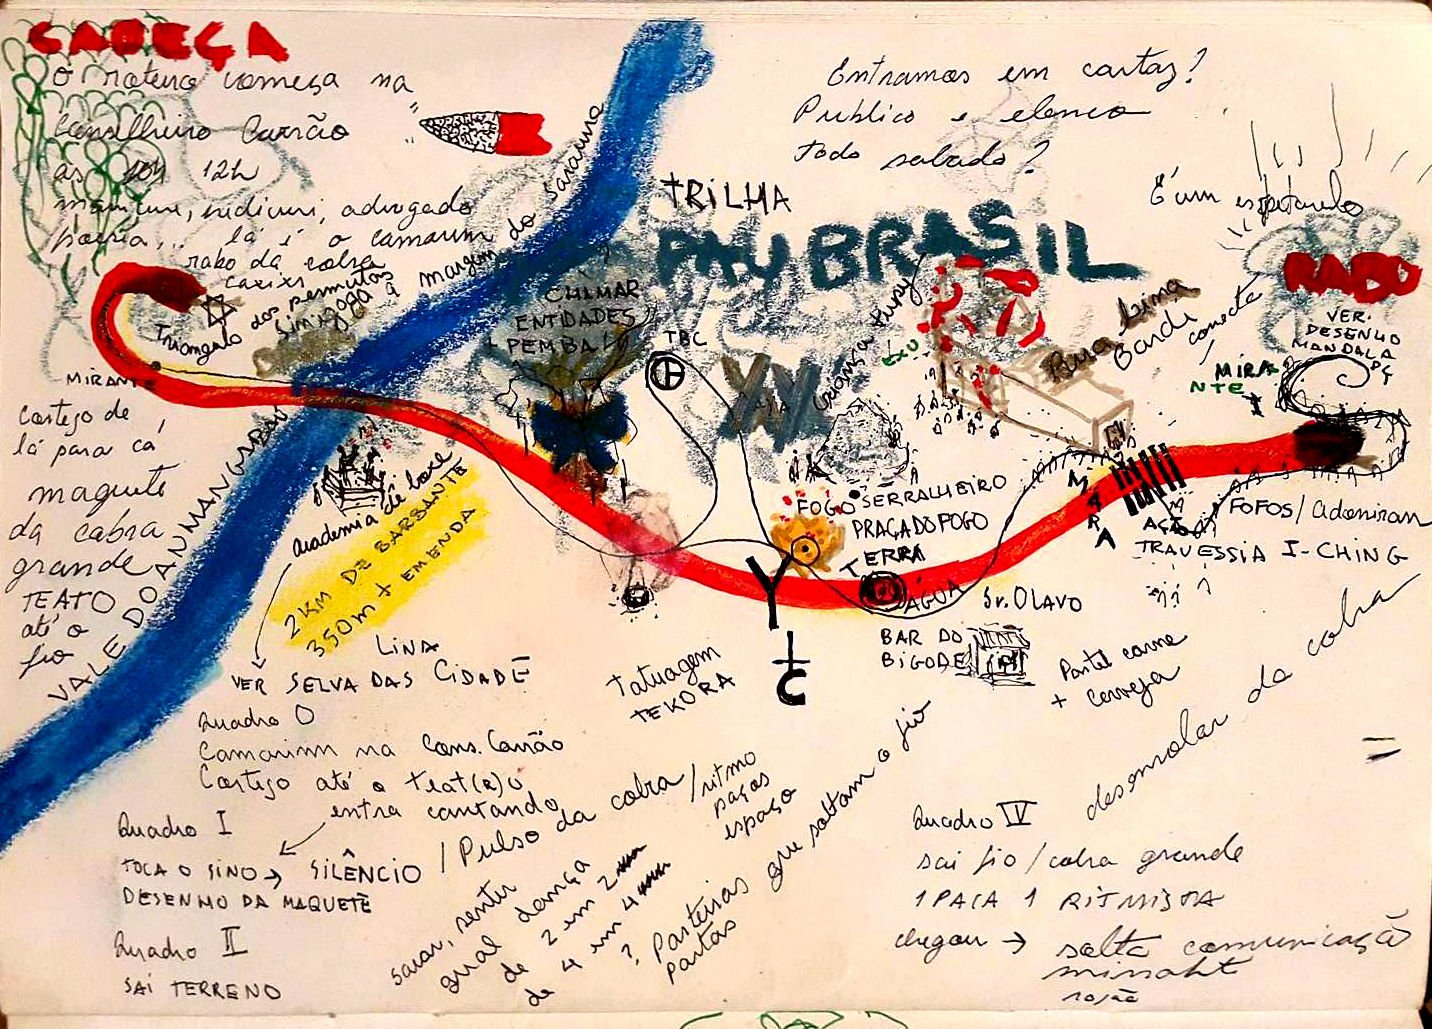 CABEÇA
O roteiro começa na
Conselheiro Carrão
às 10h 12h
manicure, advogado
lá é o camarim
rabo da cobra
caxixi
Triangulo
das permutas
Sinagoga à margem do
MIRANTE
Cortejo de
lá para cá
maquete
da cobra
grande
TEATO
até o
fio
VALE DO ANHANGABAÚ
Entramos em cartaz?
Publico e elenco
todo sabado?
TRILHA
PAU BRASIL
CHAMAR
ENTIDADES
+ PEMBA
TBC
criança
EXU
Rua Lina
Bardi
conecta
É um espetaculo
RABO
VER.
DESENHO
MANDALA
MIRA
NTE
academia de boxe
2 KM DE BARBANTE
350m + EMENDA
LINA
VER SELVA DAS CIDADE
FOGO
SERRALHEIRO
PRAÇA DO FOGO
TERRA
ÁGUA
Sr. OLAVO
BAR DO
BIGODE
Pastel carne
+ cerveja
MARA
FOFOS / Adoniran
TRAVESSIA I-CHING
Y
Tatuagem
TEKORA
desenrolar da cobra
Quadro 0
Camarim na Cons. Carrão
Cortejo até o teat(r)o
entra cantando
Quadro I
TOCA O SINO → SILÊNCIO / Pulso da cobra / ritmo
paços
espaço
DESENHO DA MAQUETE
Quadro II
SAI TERRENO
sarar, sentir
qual dança
de 2 em 2
de 4 em 4
? Parteiras que soltam o fio
partas
Quadro IV
sai fio / cobra grande
1 PACA 1 RITMISTA
chegou → solta comunicação